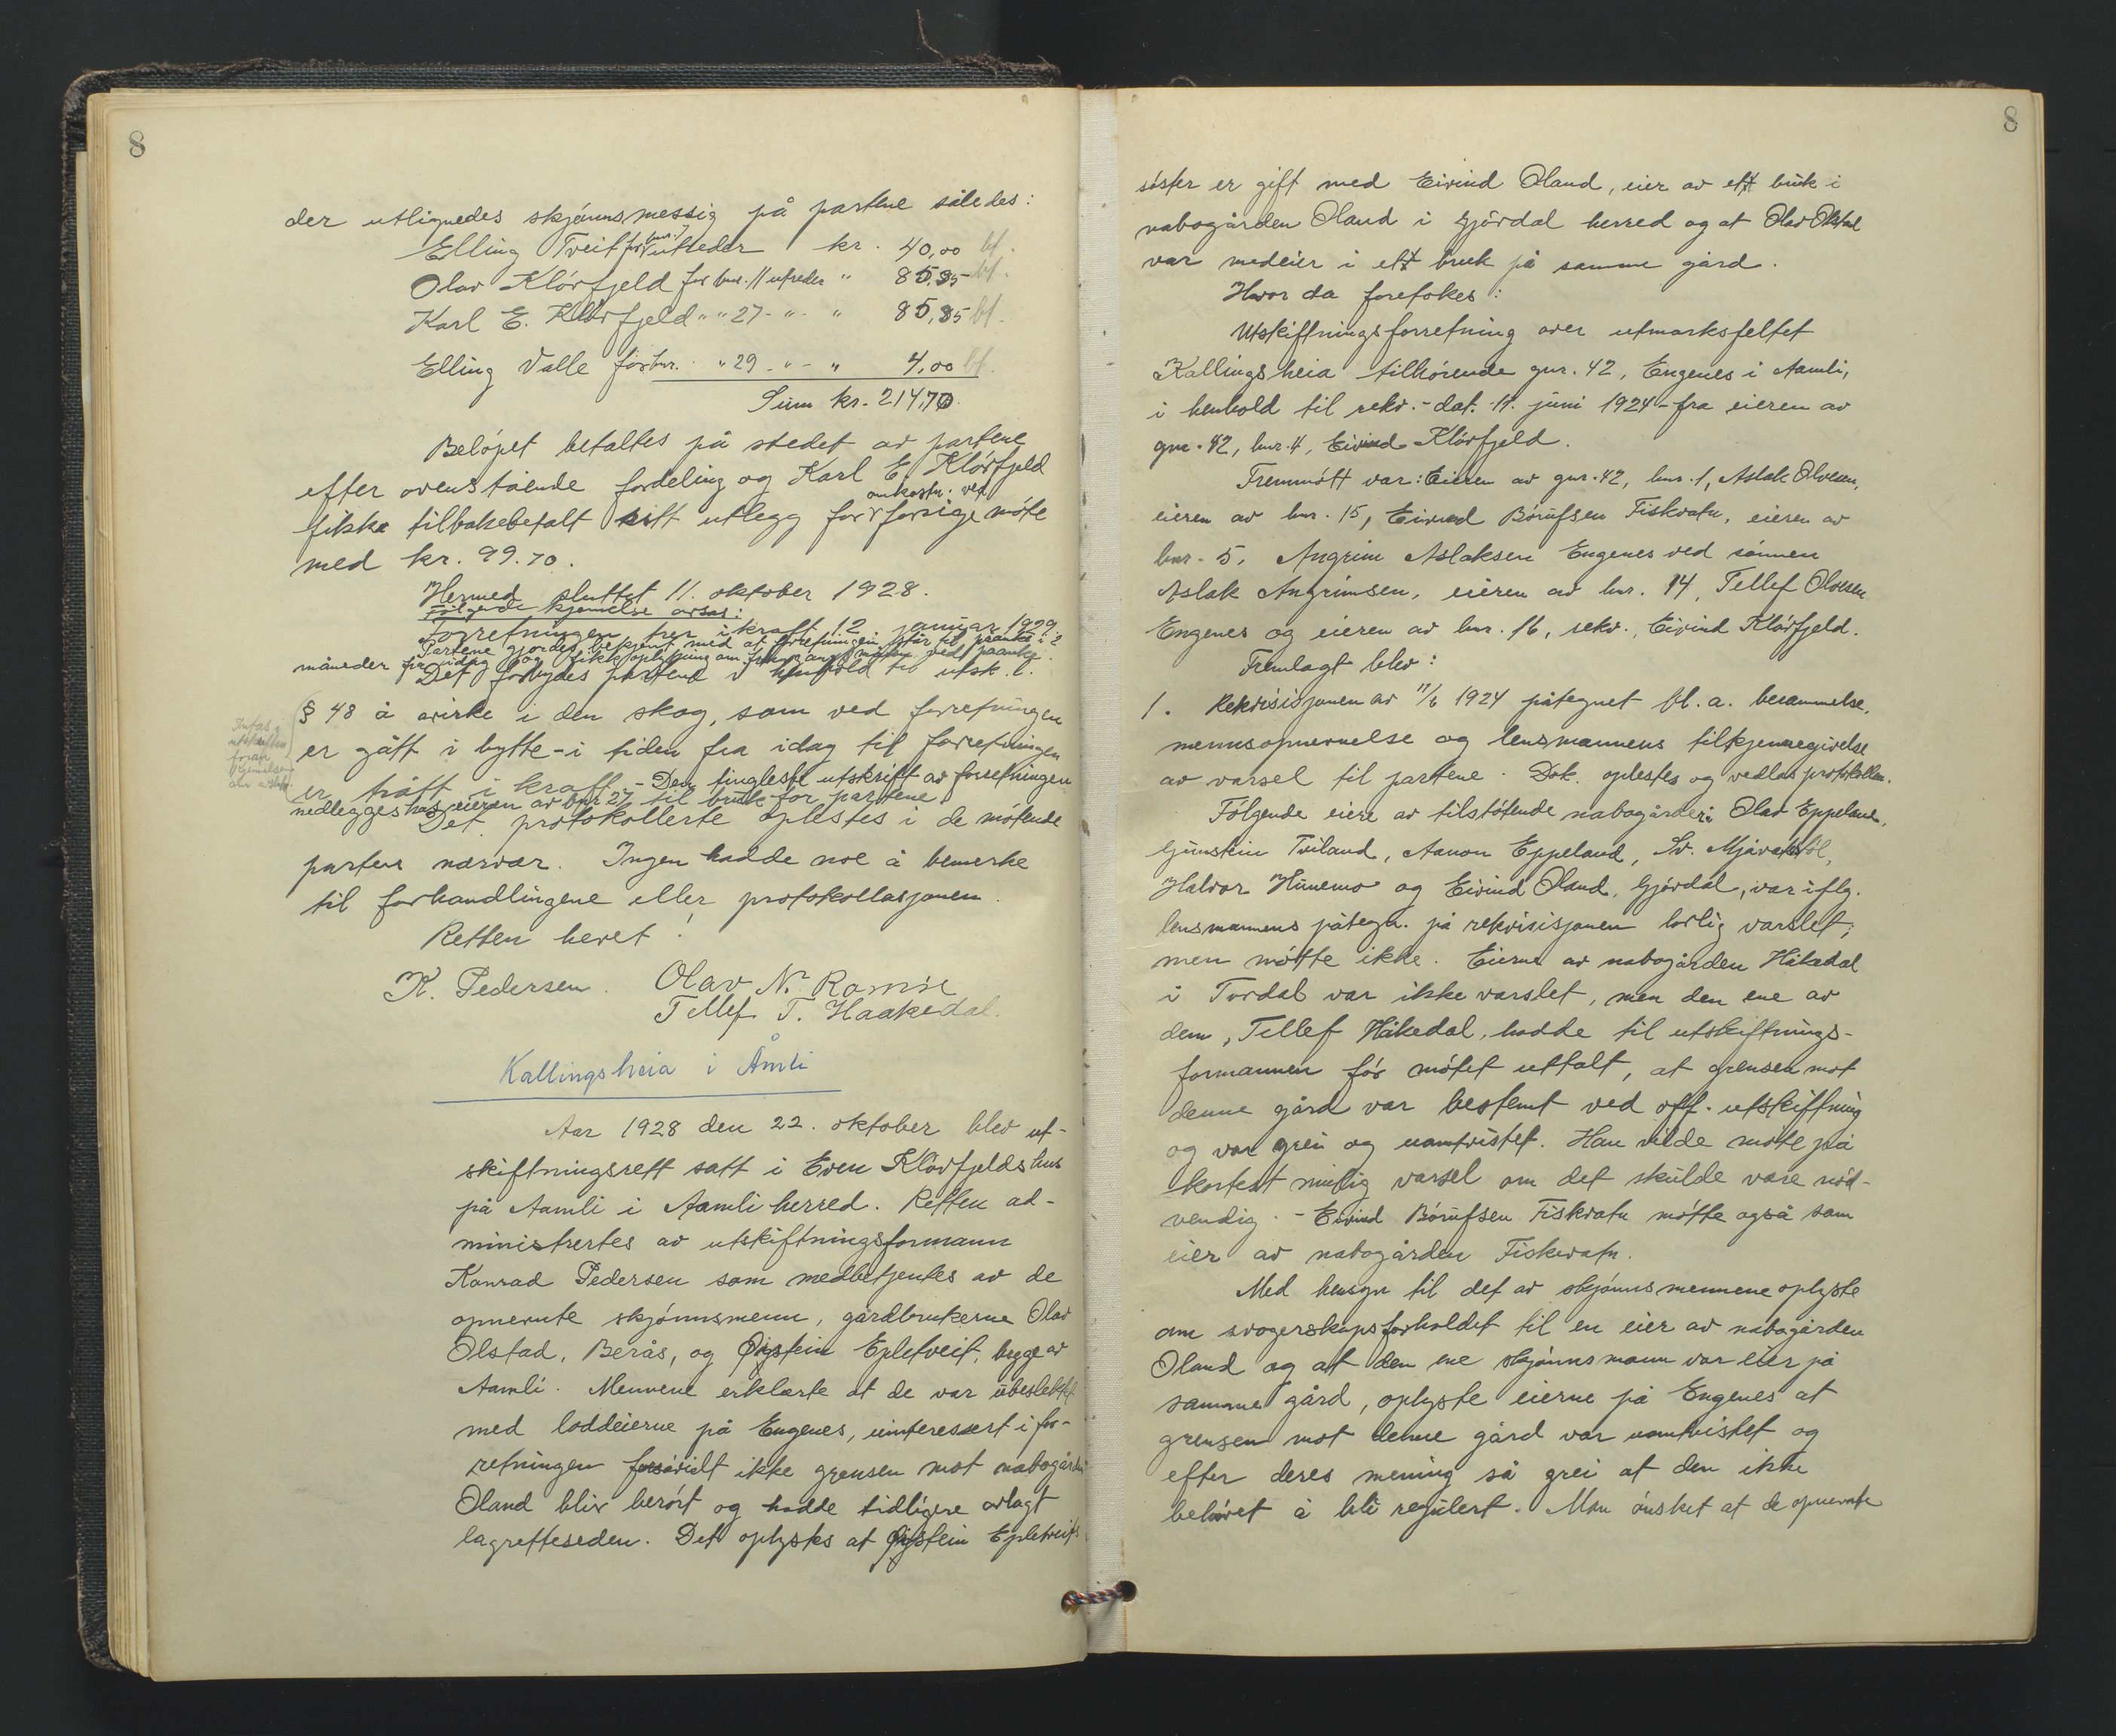 8
der utlignedes skjønnsmessig på partene således:
Elling Tveit for bnr. 7 utreder kr. 40,00 bt.
Olav Klövfjeld for bnr. 11 utreder " 85,35 bt.
Karl E. Klövfjeld " " 27 - " - " 85,35 bt.
Elling Valle for bnr. " 29 - " - " 4,00 bt.
Sum kr. 214,70.
Beløpet betaltes på stedet av partene
efter ovenstående fordeling og Karl E. Klövfjeld
omkostn. ved
fikk tilbakebetalt sitt utlegg for forrige møte
med kr. 99.70.
Hermed sluttet 11. oktober 1928.
Følgende kjennelse avsas:
Forretningen trer i kraft 12 januar 1929.
Partene gjordes bekjent med at forretningen står til påanke i 2
måneder fra idag og fikk oplysning om fremgangsmåten ved påanke.
Det forbydes partene i henhold til utsk. l.
§ 48 å virke i den skog, som ved forretningen
er gått i bytte - i tiden fra idag til forretningen
er trått i kraft. - Den tingleste utskrift av forretningen
nedlegges hos eieren av bnr 27 til bruk for partene.
Det protokollerte oplestes i de møtende
parters nærvær. Ingen hadde noe å bemerke
til forhandlingene eller protokollasjonen.
Retten hevet!
K. Pedersen. Olav N. Ramse
Tellef T. Haakedal.
Kallingsheia i Åmli
Aar 1928 den 22. oktober blev ut-
skiftningsrett satt i Even Klövfjelds hus
på Aamli i Aamli herred. Retten ad-
ministrertes av utskiftningsformann
Konrad Pedersen som medbetjentes av de
opnevnte skjønnsmenn, gårdbrukerne Olav
Olstad, Berås, og Øystein Epletveit, begge av
Aamli. Mennene erklærte at de var ubeslektet
med loddeierne på Engenes, uinteressert i for-
retningen forsåvidt ikke grensen mot nabogården
Øland blir berørt og hadde tidligere avlagt
lagretteseden. Det oplystes at Øystein Epletveits
8
søster er gift med Eivind Øland, eier av ett bruk i
nabogården Øland i Gjövdal herred og at Olav Olstad
var medeier i ett bruk på samme gård.
Hvor da foretokes:
Utskiftningsforretning over utmarksfeltet
Kallingsheia tilhørende gnr. 42, Engenes i Aamli,
i henhold til rekv. - dat. 11. juni 1924 - fra eieren av
gnr. 42, bnr. 4, Eivind Klövfjeld.
Fremmøtt var: Eieren av gnr. 42, bnr. 1, Aslak Olvesen,
eieren av bnr. 15, Eivind Börufsen Fiskvatn, eieren av
bnr. 5, Angrim Aslaksen Engenes ved sønnen
Aslak Angrimsen, eieren av bnr. 14, Tellef Olvesen
Engenes og eieren av bnr. 16, rekv., Eivind Klövfjeld.
Fremlagt blev:
1. Rekvisisjonen av 11/6 1924 påtegnet bl. a. berammelse,
mennsopnevnelse og lensmannens tilkjennegivelse
av varsel til partene. Dok. oplestes og vedlas protokollen.
Følgende eiere av tilstøtende nabogårder: Olav Eppeland,
Gunstein Tviland, Aanon Eppeland, Sv. Mjåvatstöl,
Halvor Hunemo og Eivind Øland, Gjövdal, var iflg.
lensmannens påtegn. på rekvisisjonen lovlig varslet,
men møtte ikke. Eierne av nabogården Håkedal
i Tovdal var ikke varslet, men den ene av
dem, Tellef Håkedal, hadde til utskiftnings-
formannen før møtet uttalt, at grensen mot
denne gård var bestemt ved off. utskiftning
og var grei og uomtvistet. Han vilde møte på
kortest mulig varsel om det skulde være nød-
vendig. - Eivind Börufsen Fiskvatn møtte også som
eier av nabogården Fiskevatn.
Med hensyn til det av skjønnsmennene oplyste
om svogerskapsforholdet til en eier av nabogården
Øland og at den ene skjønnsmann var eier på
samme gård, oplyste eierne på Engenes at
grensen mot denne gård var uomtvistet og
efter deres mening så grei at den ikke
behøvet å bli regulert. Man ønsket at de opnevnte